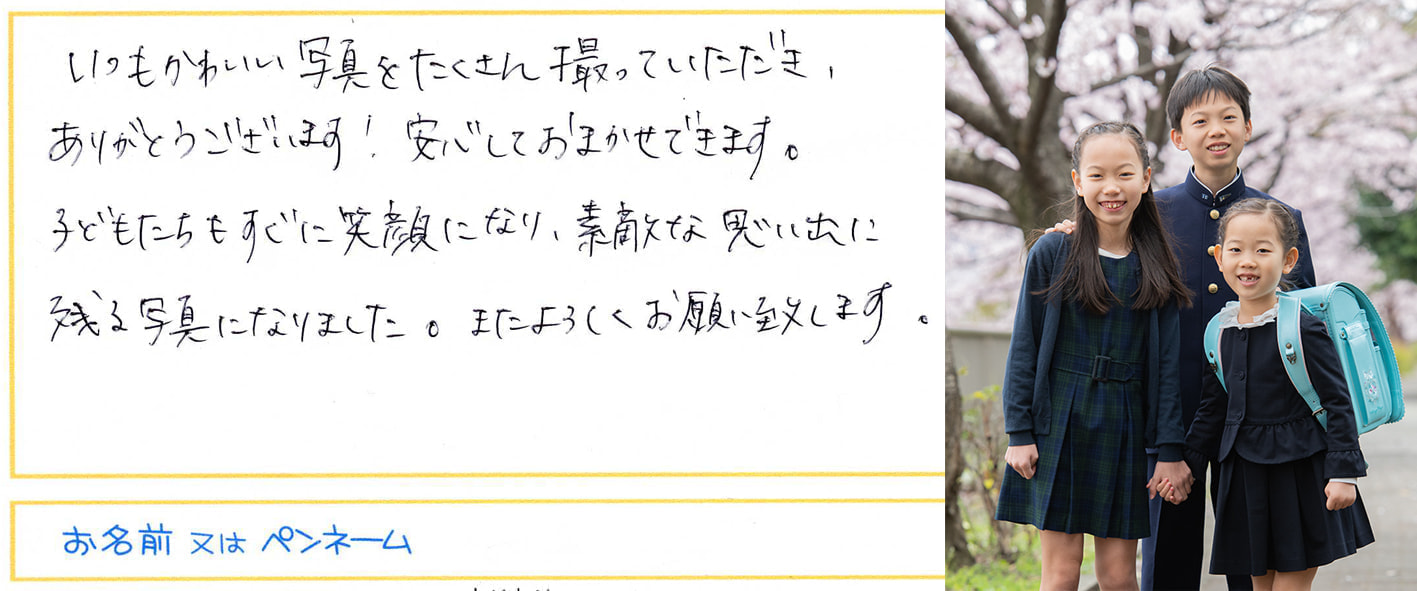 いつもかわいい写真をたくさん撮っていただき、
ありがとうございます！安心しておまかせできます。
子どもたちもすぐに笑顔になり、素敵な思い出に
残る写真になりました。またよろしくお願い致します。
お名前 又は ペンネーム